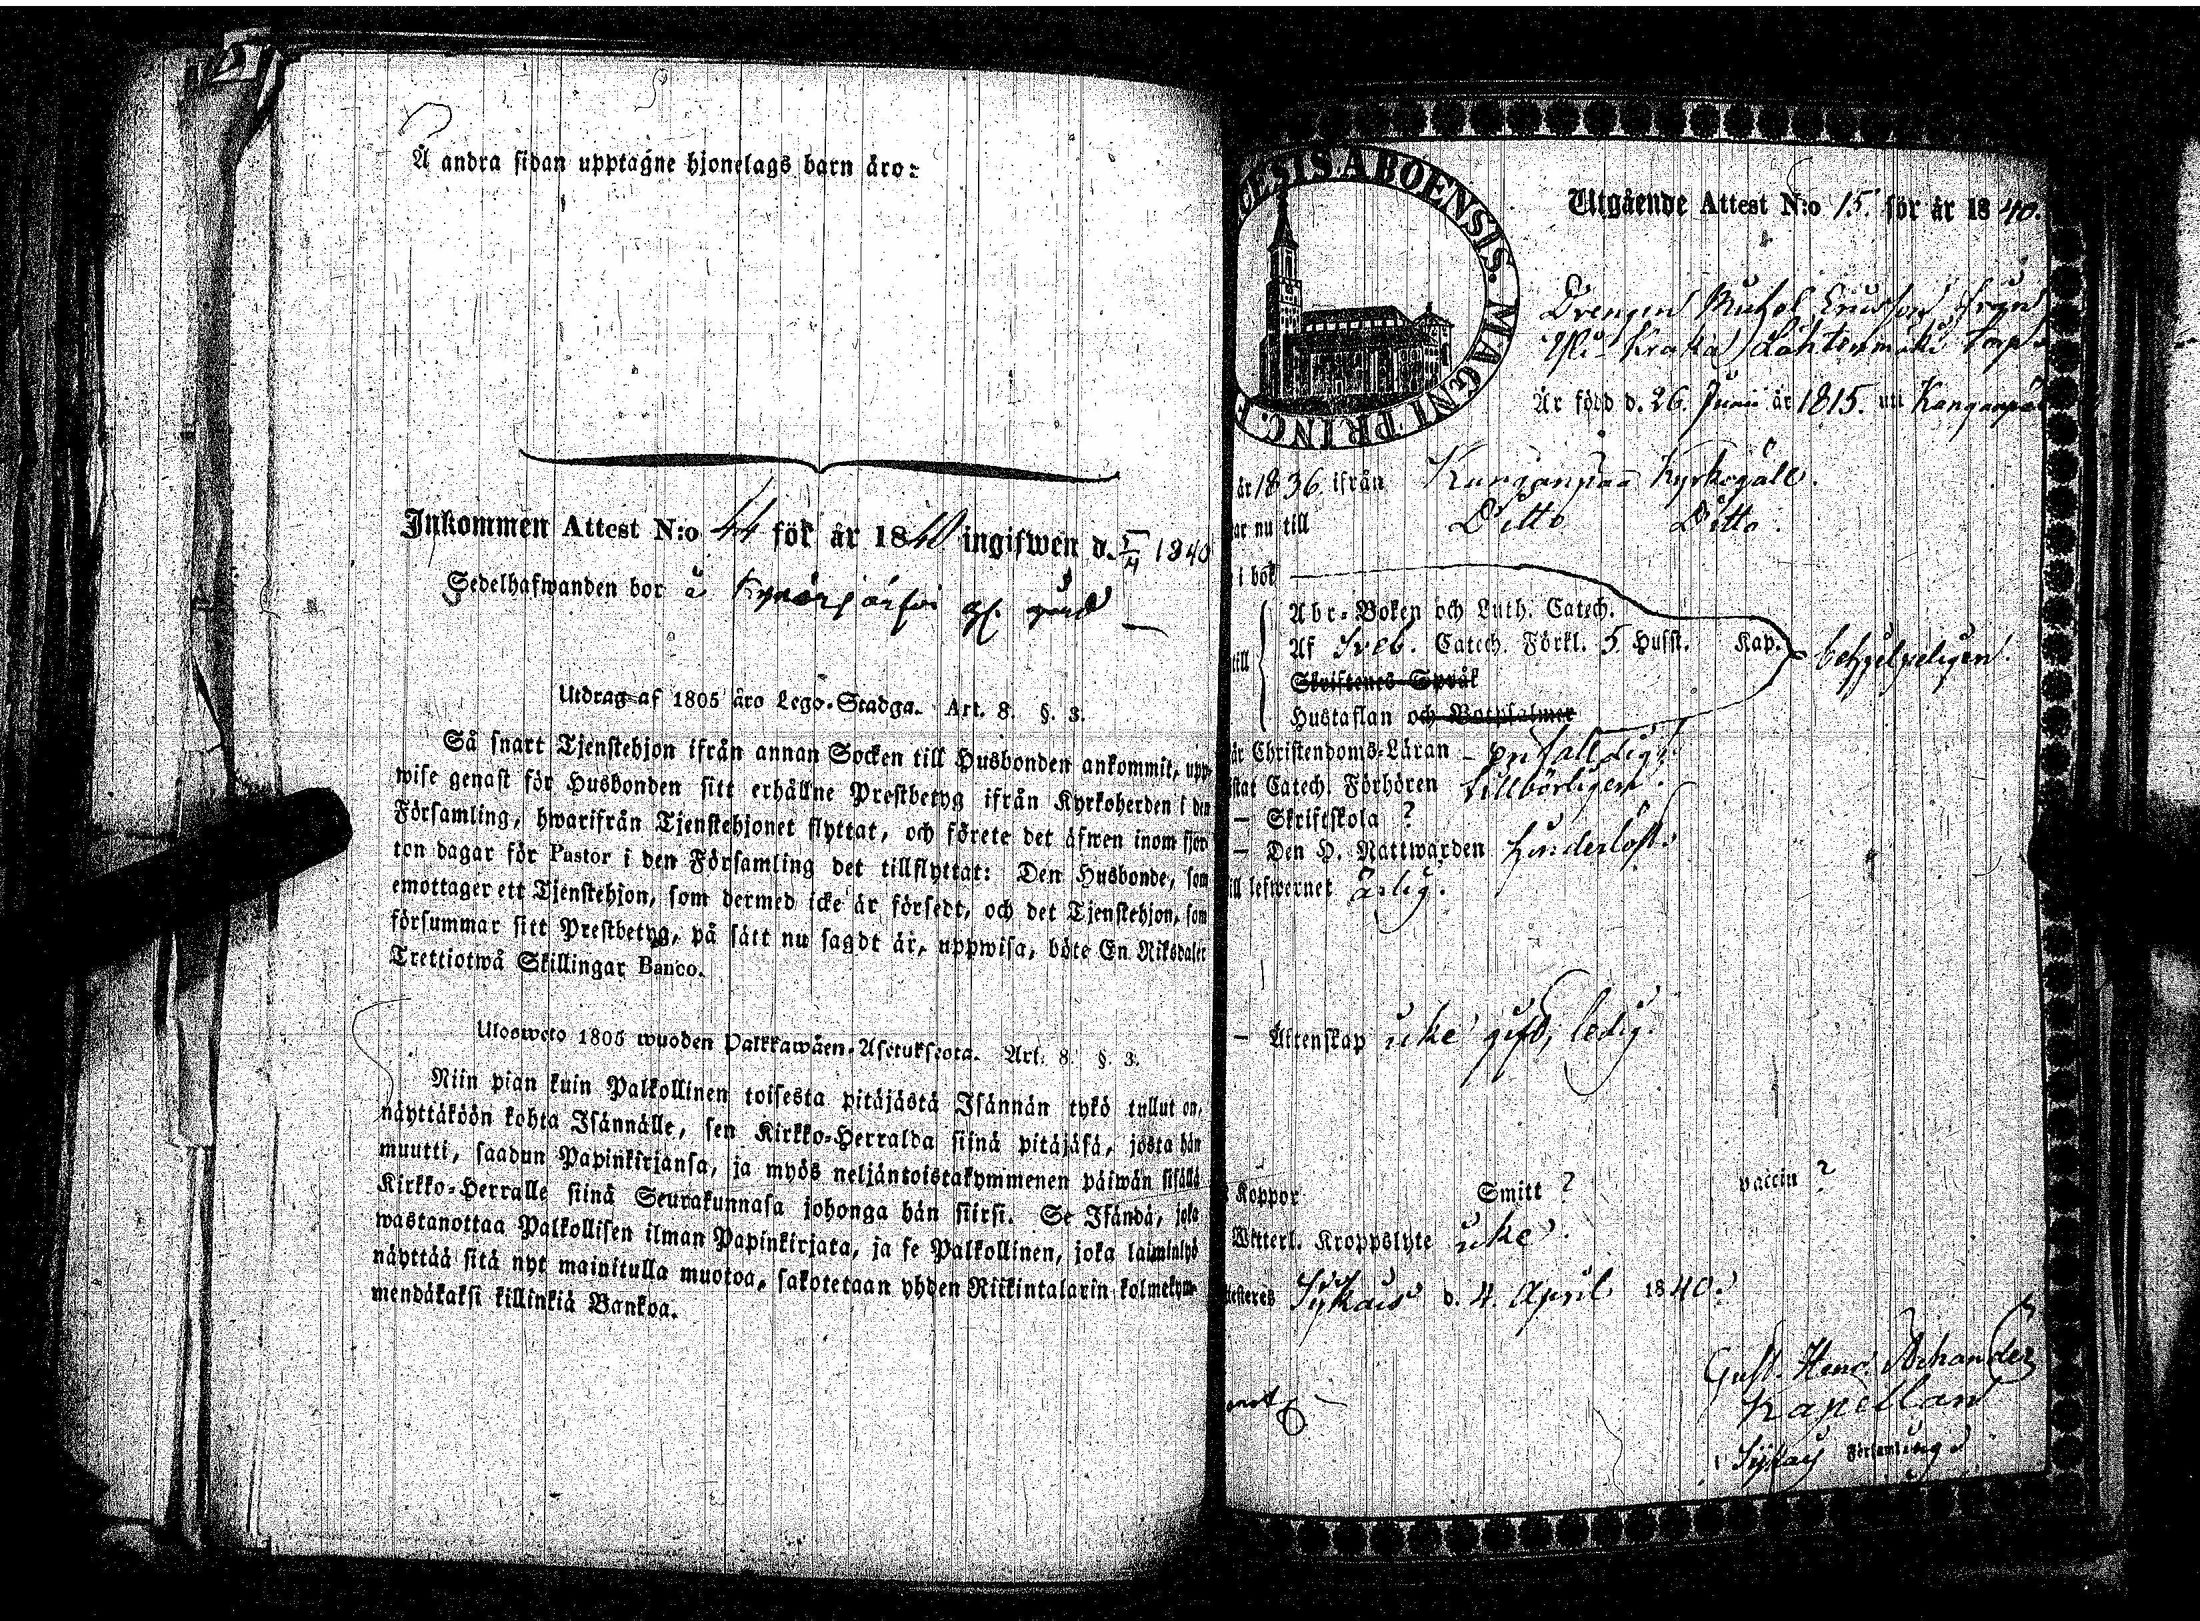 Å andra sidan upptagne hjonelags barn äro:
Inkommen Attest N:o 44 för år 1840 ingifwen d. 5/4 1840
Sedelhafwanden bor å gård
Utdrag af 1805 års Lego-Stadga. Art. 8. §. 3.
Så snart Tjenstehjon ifrån annan Socken till Husbonden ankommit, upp-
wise genast för Husbonden sitt erhållne Prestbetyg ifrån Kyrkoherden i den
Församling, hwarifrån Tjenstehjonet flyttat, och förete det äfwen inom fjor-
ton dagar för Pastor i den Församling det tillflyttat: Den Husbonde, som
emottager ett Tjenstehjon, som dermed icke är försedt, och det Tjenstehjon, som
försummar sitt Prestbetyg, på sätt nu sagdt är, uppwisa, böte En Riksdaler
Trettiotwå Skillingar Banco.
Ulosweto 1805 wuoden Palkkawäen-Asetuksesta. Art. 8. §. 3.
Niin pian kuin Palkollinen toisesta pitäjästä Isännän tykö tullut on,
näyttäköön kohta Isännälle, sen Kirkko-Herralda siinä pitäjäsä, josta hän
muutti, saadun Papinkirjansa, ja myös neljäntoistakymmenen päiwän sisällä
Kirkko-Herralle siinä Seurakunnasa johonga hän siirsi. Se Isändä, joka
wastanottaa Palkollisen ilman Papinkirjata, ja se Palkollinen, joka laiminlyö
näyttää sitä nyt mainitulla muotoa, sakotetaan yhden Riikintalarin kolmekym-
mendäkaksi killinkiä Bankoa.
CESIS ABOENSIS. MAGNI PRINC. F
Utgående Attest N:o 15. för år 1840.
Drengen Michel Ericsson från
Lähtenmäki torp
Är född d. 26. Junii år 1815. uti Kanganpää
år 1836 ifrån Kanganpää Kyrkogäll.
ar nu till Ditto Ditto.
i bok
Abc-Boken och Luth. Catech.
till Af Sveb. Catech. Förkl. 5 Husst. Kap. behjelpeligen.
Skriftenes Språk
Hustaflan och Botpsalmer
är Christendoms-Läran enfalldig.
stat Catech. Förhören tillbörligen.
— Skriftskola ?
— Den H. Nattwarden hinderlöst.
ill lefwernet ärlig.
— Äktenskap icke gift, ledig.
Koppor Smitt ? vaccin ?
Witterl. Kroppslyte icke.
testeres Sykais d. 4. April 1840.
Gust. Henr. Achander
Kapellan
Sykais Församling